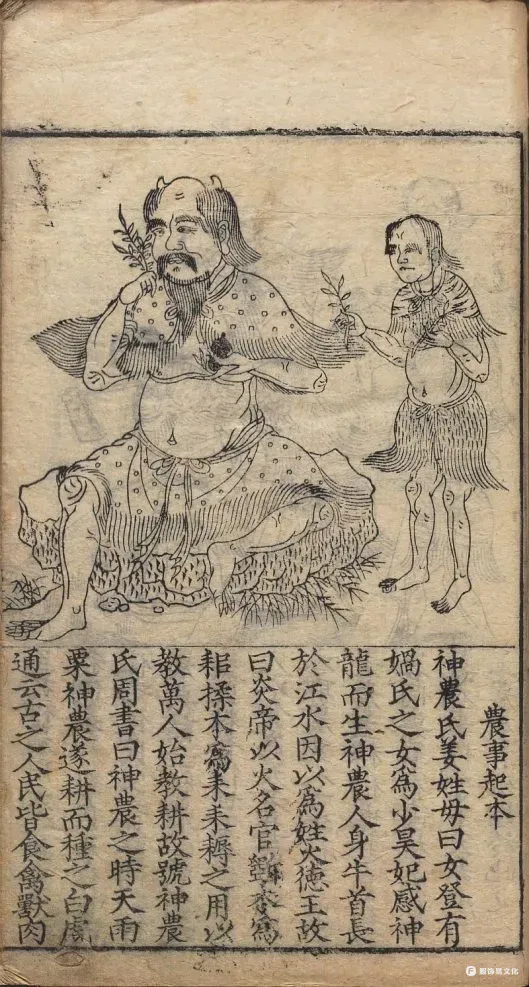 農事起本
神農氏姜姓母曰女登有
媧氏之女爲少昊妃感神
龍而生神農人身牛首長
於江水因以爲姓火德王故
曰炎帝以火名官斵木爲
耜揉木爲耒耒耨之用以
教萬人始教耕故號神農
氏周書曰神農之時天雨
粟神農遂耕而種之白虎
通云古之人民皆食禽獸肉
服饰文化